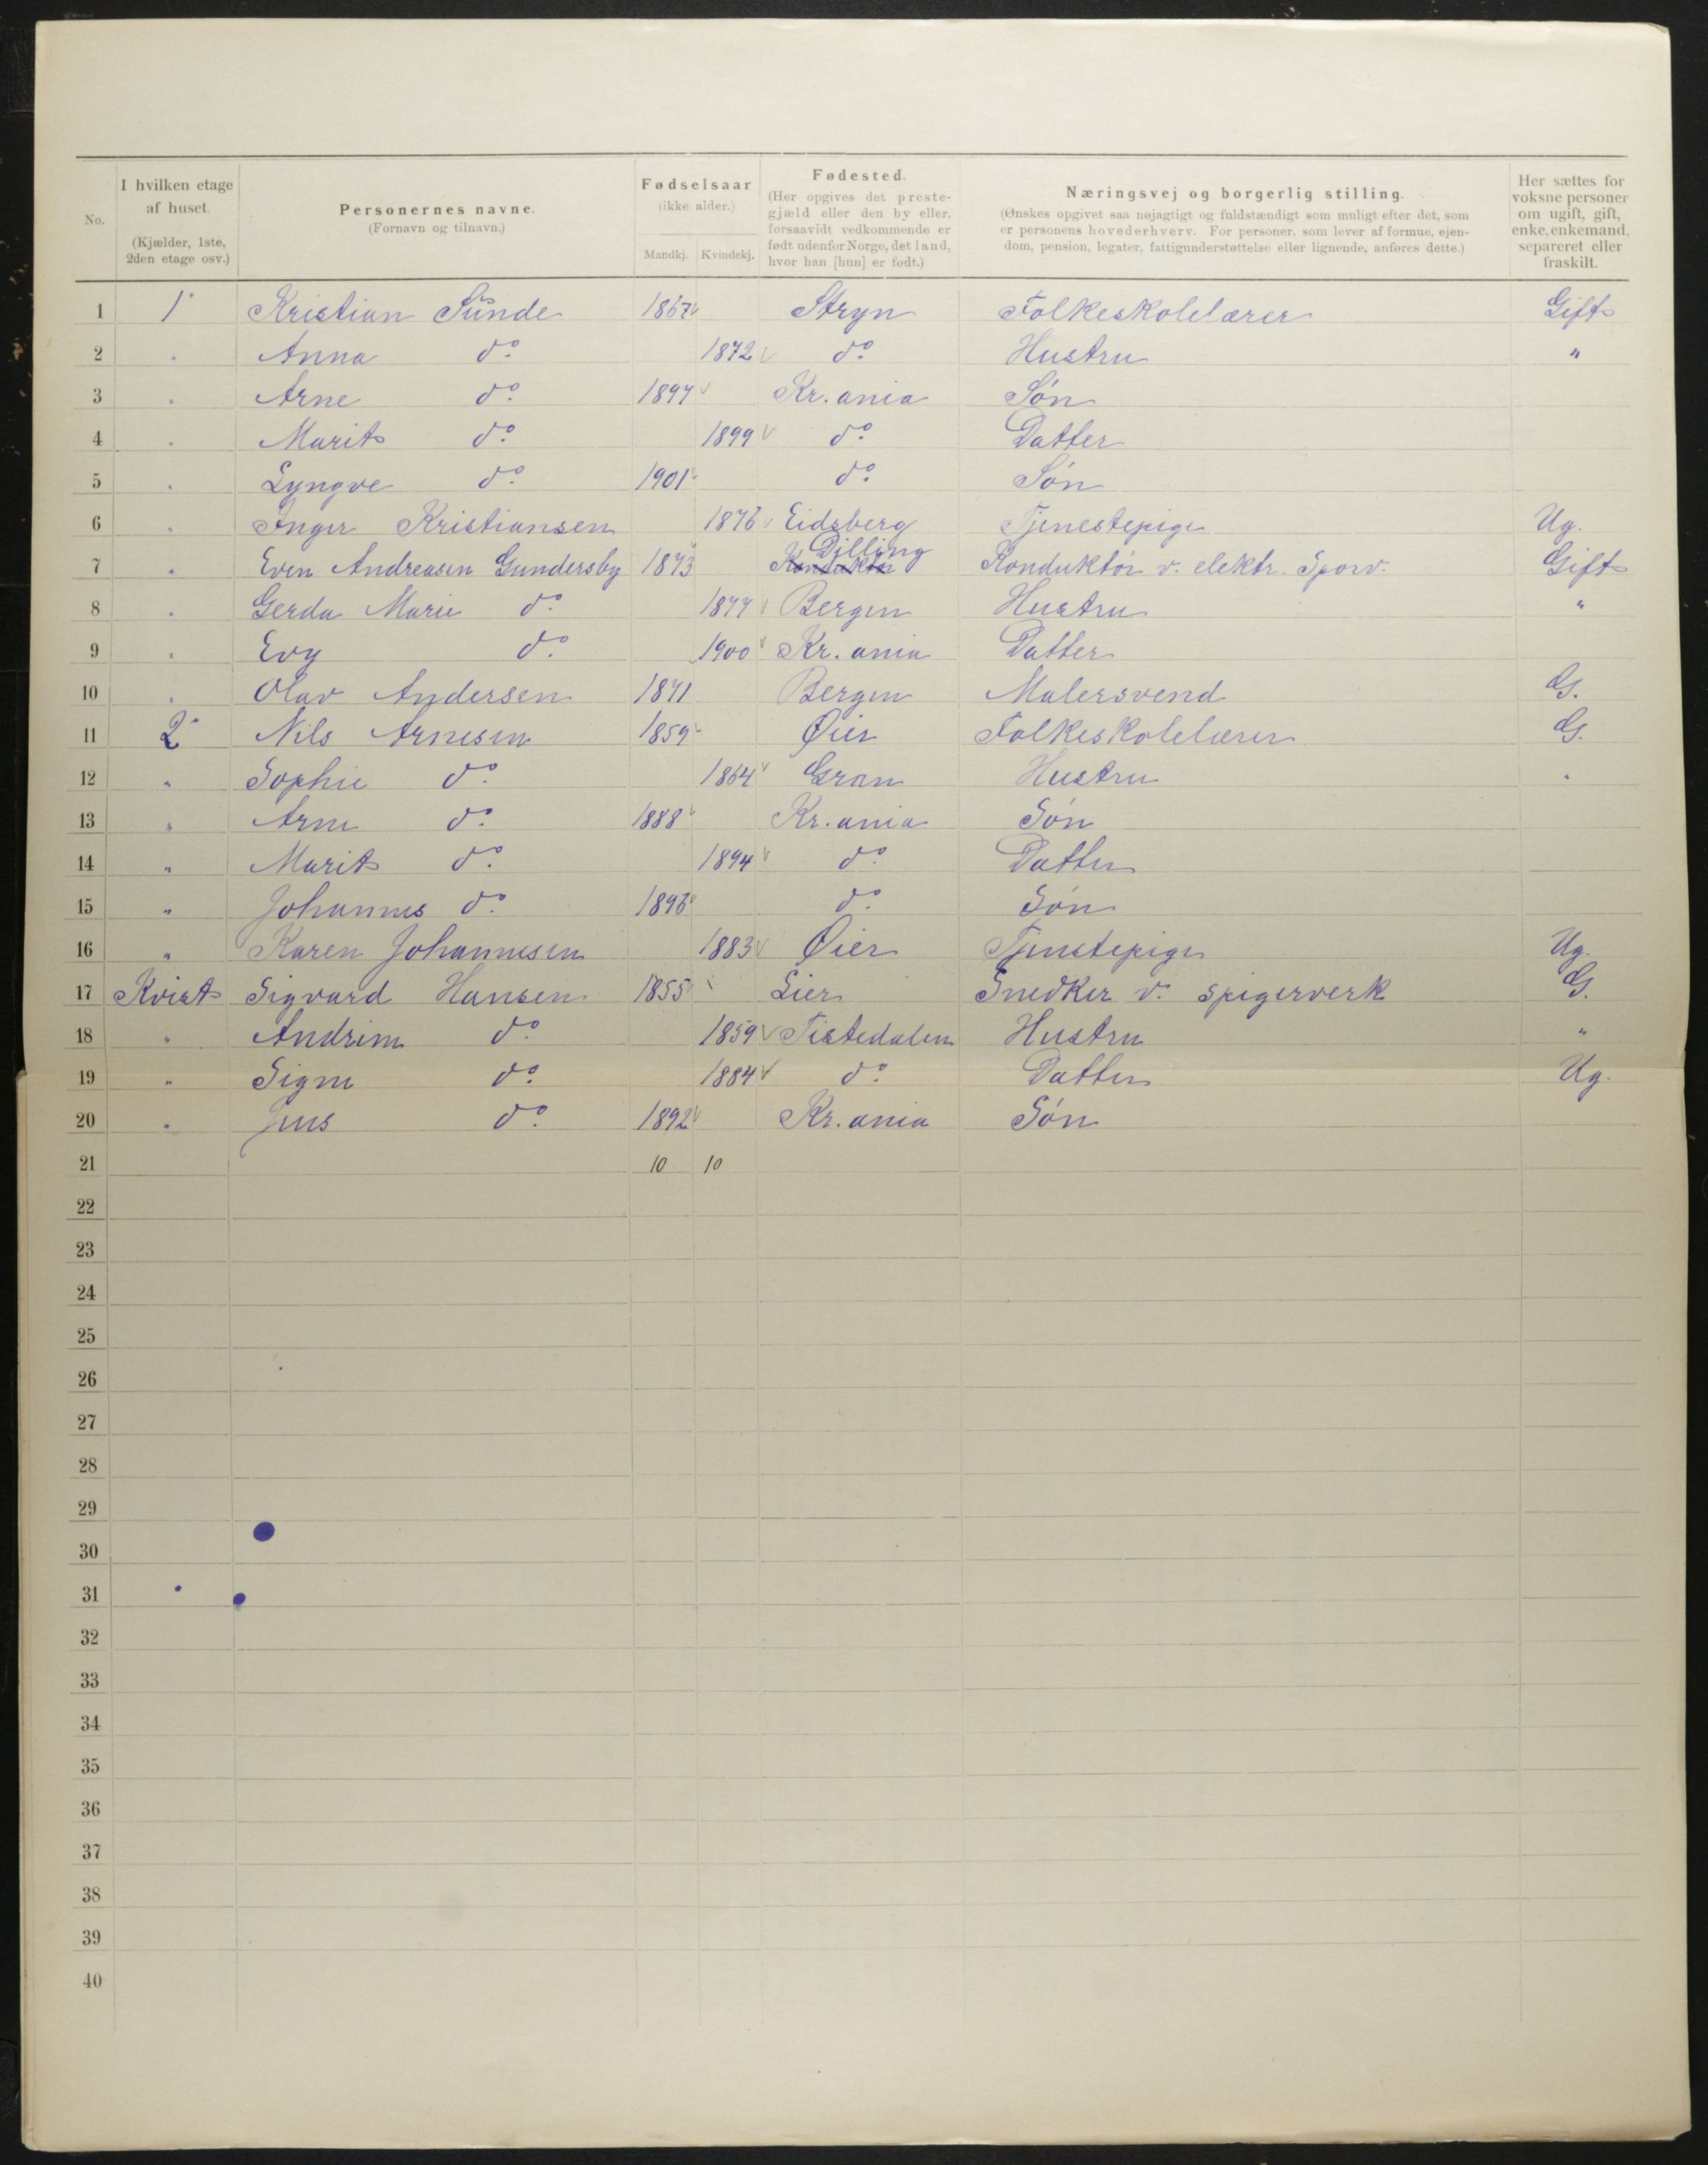 No.
I hvilken etage af huset. (Kjælder, 1ste, 2den etage osv.)
Personernes navne. (Fornavn og tilnavn.)
Fødselsaar (ikke alder.)
Mandkj. Kvindekj.
Fødested. (Her opgives det prestegjæld eller den by eller, forsaavidt vedkommende er født udenfor Norge, det land, hvor han [hun] er født.)
Næringsvej og borgerlig stilling. (Ønskes opgivet saa nøjagtigt og fuldstændigt som muligt efter det, som er personens hovederhverv. For personer, som lever af formue, ejendom, pension, legater, fattigunderstøttelse eller lignende, anføres dette.)
Her sættes for voksne personer om ugift, gift, enke, enkemand, separeret eller fraskilt.
1 1 Kristian Sunde 1867 Stryn Folkeskolelærer Gift
2 " Anna do. 1872 do. Hustru "
3 " Arne do. 1897 Kr.ania Søn
4 " Marit do. 1899 do. Datter
5 " Lyngve do. 1901 do. Søn
6 " Inger Kristiansen 1876 Eidsberg Tjenestepige Ug.
7 " Even Andreasen Gundersby 1873 Dilling Konduktør v. elektr. Sporv. Gift
8 " Gerda Marie do. 1877 Bergen Hustru "
9 " Evy do. 1900 Kr.ania Datter
10 " Olav Andersen 1871 Bergen Malersvend G.
11 2 Nils Arnesen 1859 Øier Folkeskolelærer G.
12 " Sophie do. 1864 Gran Hustru "
13 " Arne do. 1888 Kr.ania Søn
14 " Marit do. 1894 do. Datter
15 " Johannes do. 1896 do. Søn
16 " Karen Johannesen 1883 Øier Tjenstepige Ug.
17 Kvist Sigvard Hansen 1855 Lier Snedker v. spigerverk G.
18 " Andrine do. 1859 Tistedalen Hustru "
19 " Signe do. 1884 do. Datter Ug.
20 " Jens do. 1892 Kr.ania Søn
21 10 10
22
23
24
25
26
27
28
29
30
31
32
33
34
35
36
37
38
39
40